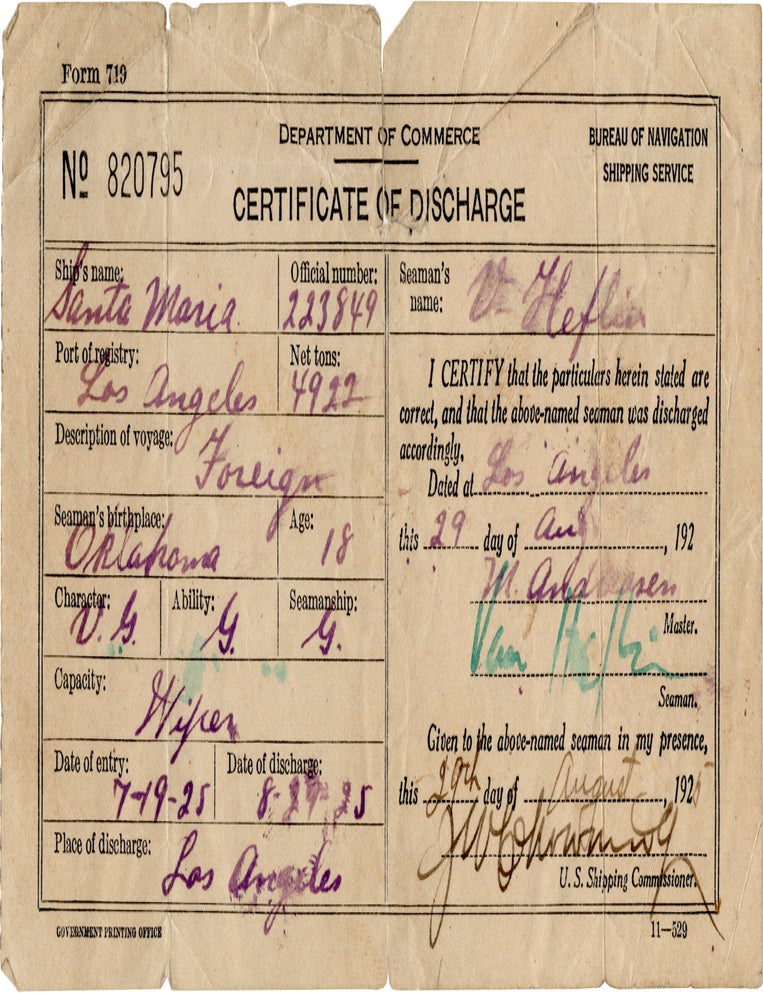 Form 719
Nº 820795
DEPARTMENT OF COMMERCE
BUREAU OF NAVIGATION
SHIPPING SERVICE
CERTIFICATE OF DISCHARGE
Ship's name:
Santa Maria
Official number:
223849
Port of registry:
Los Angeles
Net tons:
4922
Description of voyage:
Foreign
Seaman's birthplace:
Oklahoma
Age:
18
Character:
V. G.
Ability:
G.
Seamanship:
G.
Capacity:
Wiper
Date of entry:
7-19-25
Date of discharge:
8-29-25
Place of discharge:
Los Angeles
Seaman's
name:
V Heflin
I CERTIFY that the particulars herein stated are
correct, and that the above-named seaman was discharged
accordingly.
Dated at Los Angeles
this 29 day of Aug, 192
M. Andreasen
Master.
Van Heflin
Seaman.
Given to the above-named seaman in my presence,
this 29th day of August, 1925
U. S. Shipping Commissioner.
GOVERNMENT PRINTING OFFICE
11—529